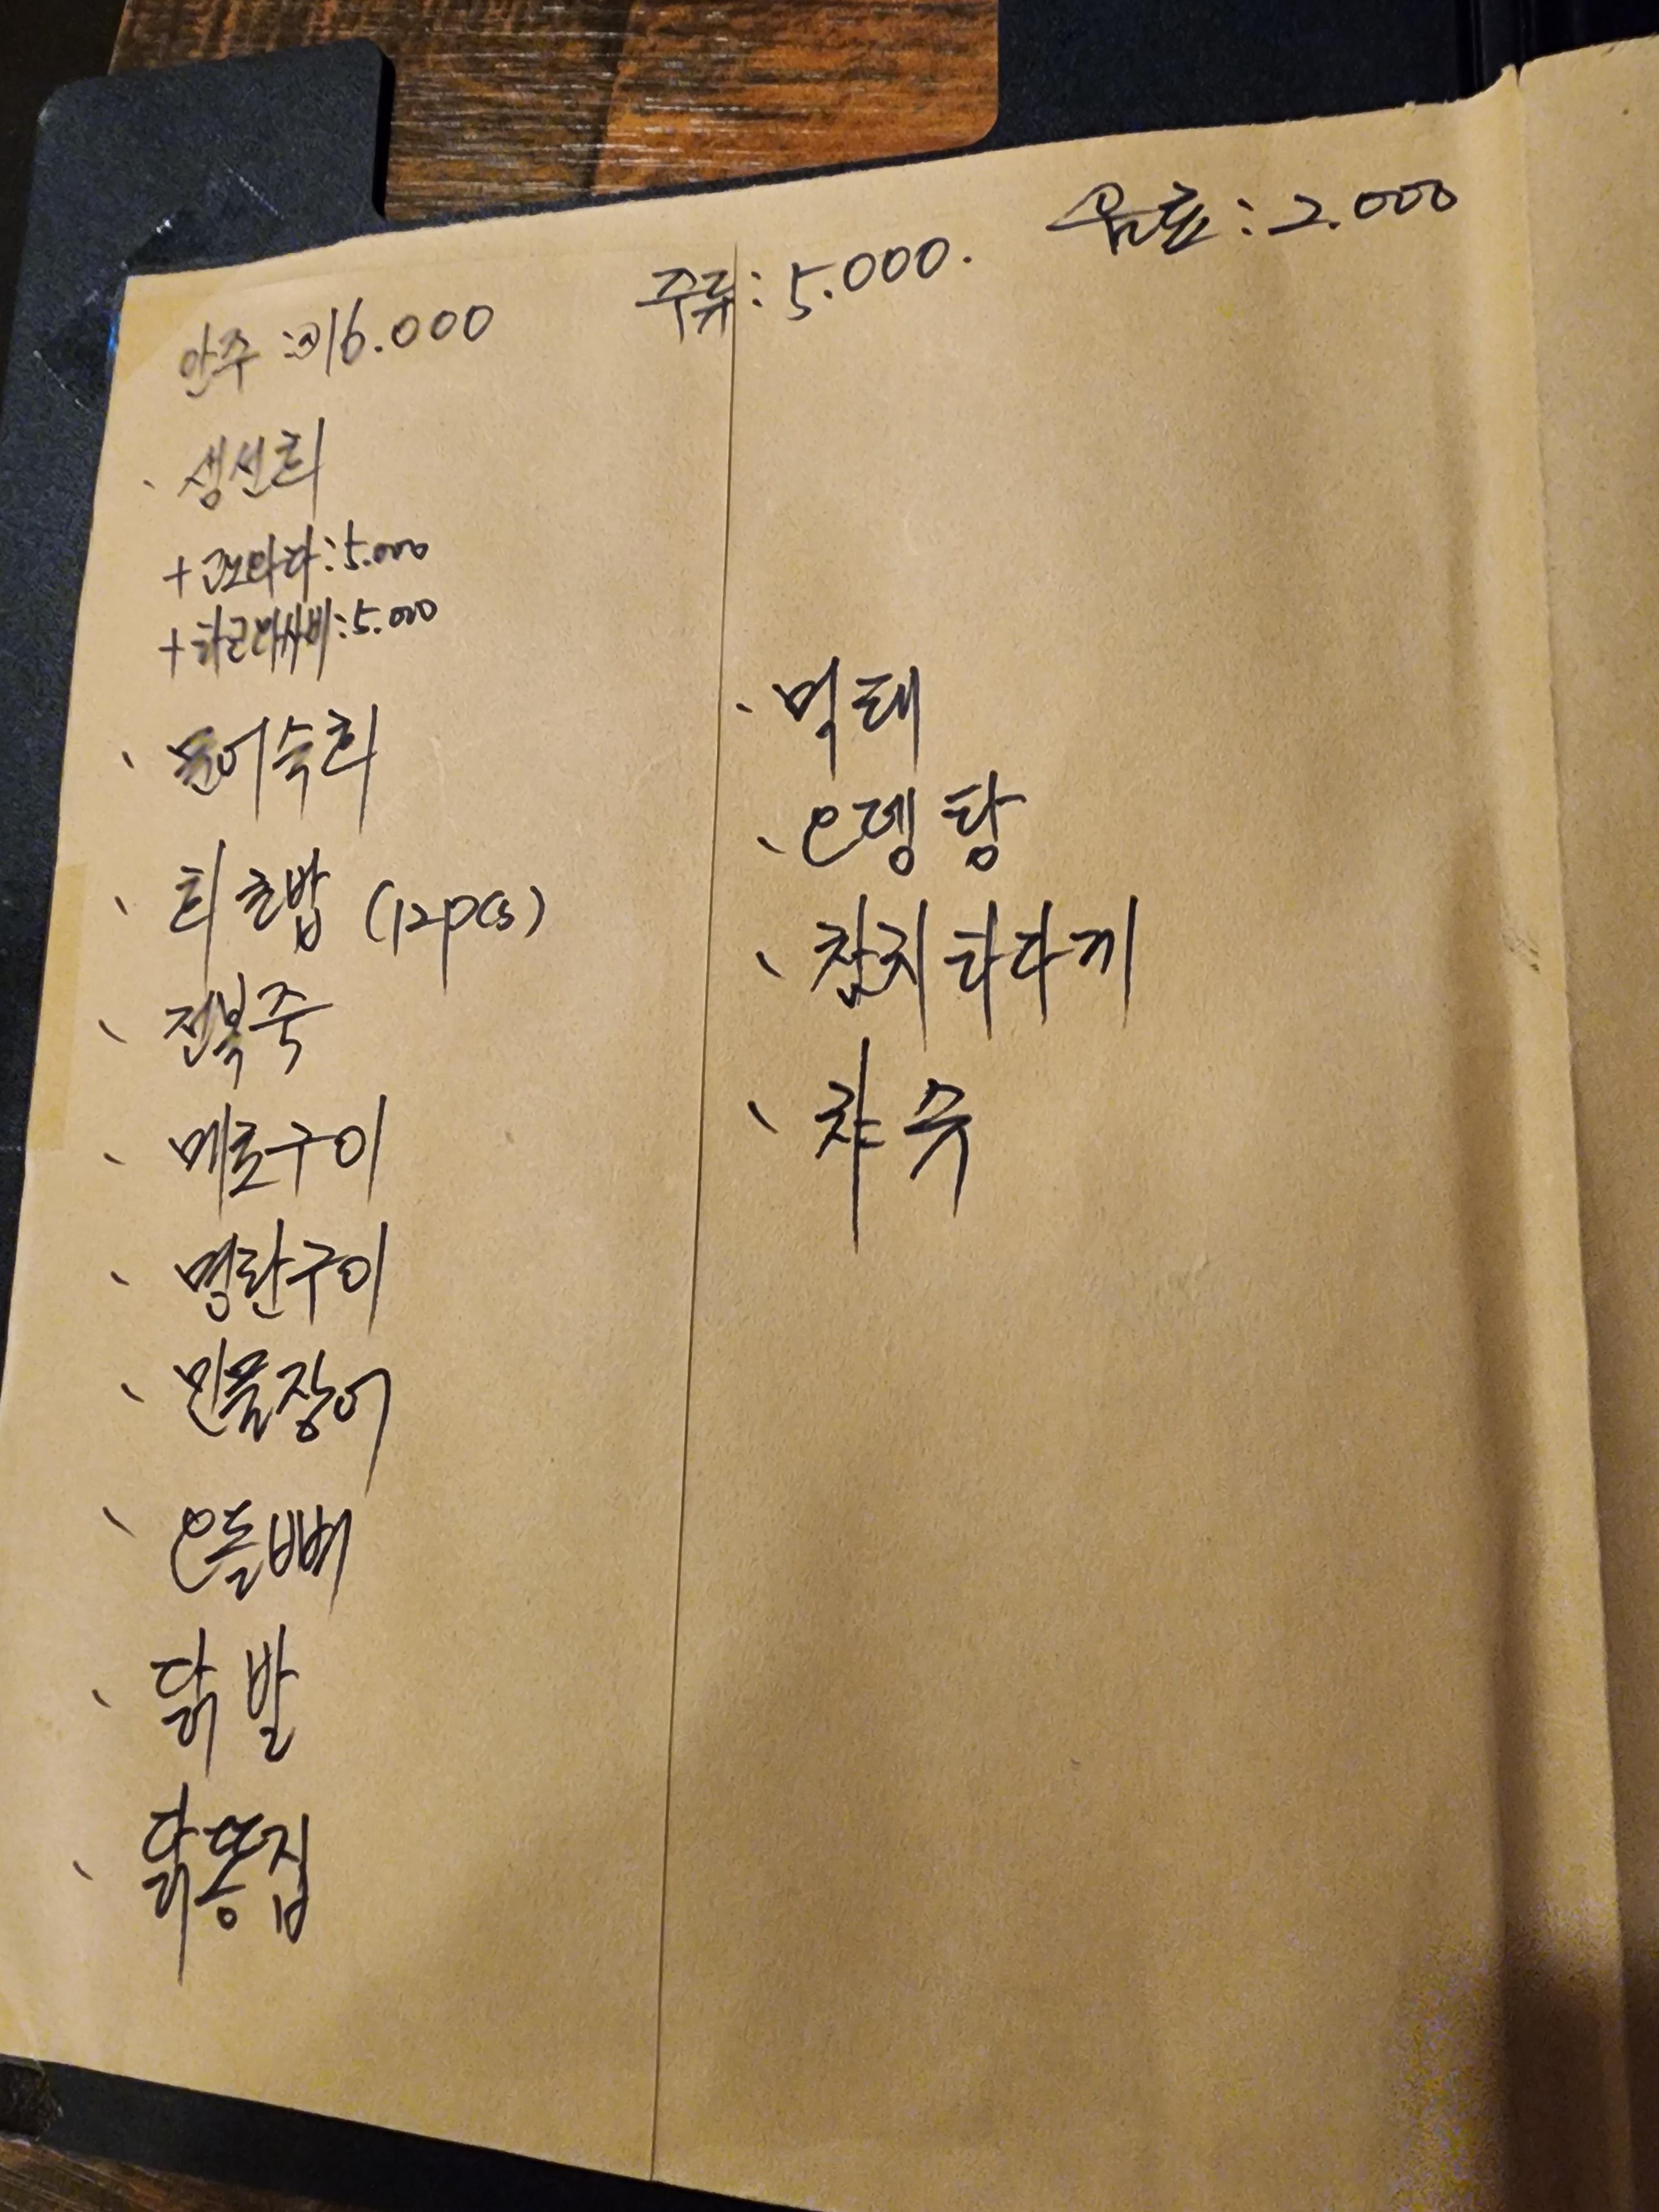 안주 : 16.000
주류 : 5.000.
음료 : 2.000
· 생선회
+ 고노와다 : 5.000
+ 타코와사비 : 5.000
· 문어숙회
· 회초밥 (12pcs)
· 전복죽
· 메로구이
· 명란구이
· 민물장어
· 오돌뼈
· 닭발
· 닭똥집
· 먹태
· 오뎅탕
· 참치타다끼
· 챠슈